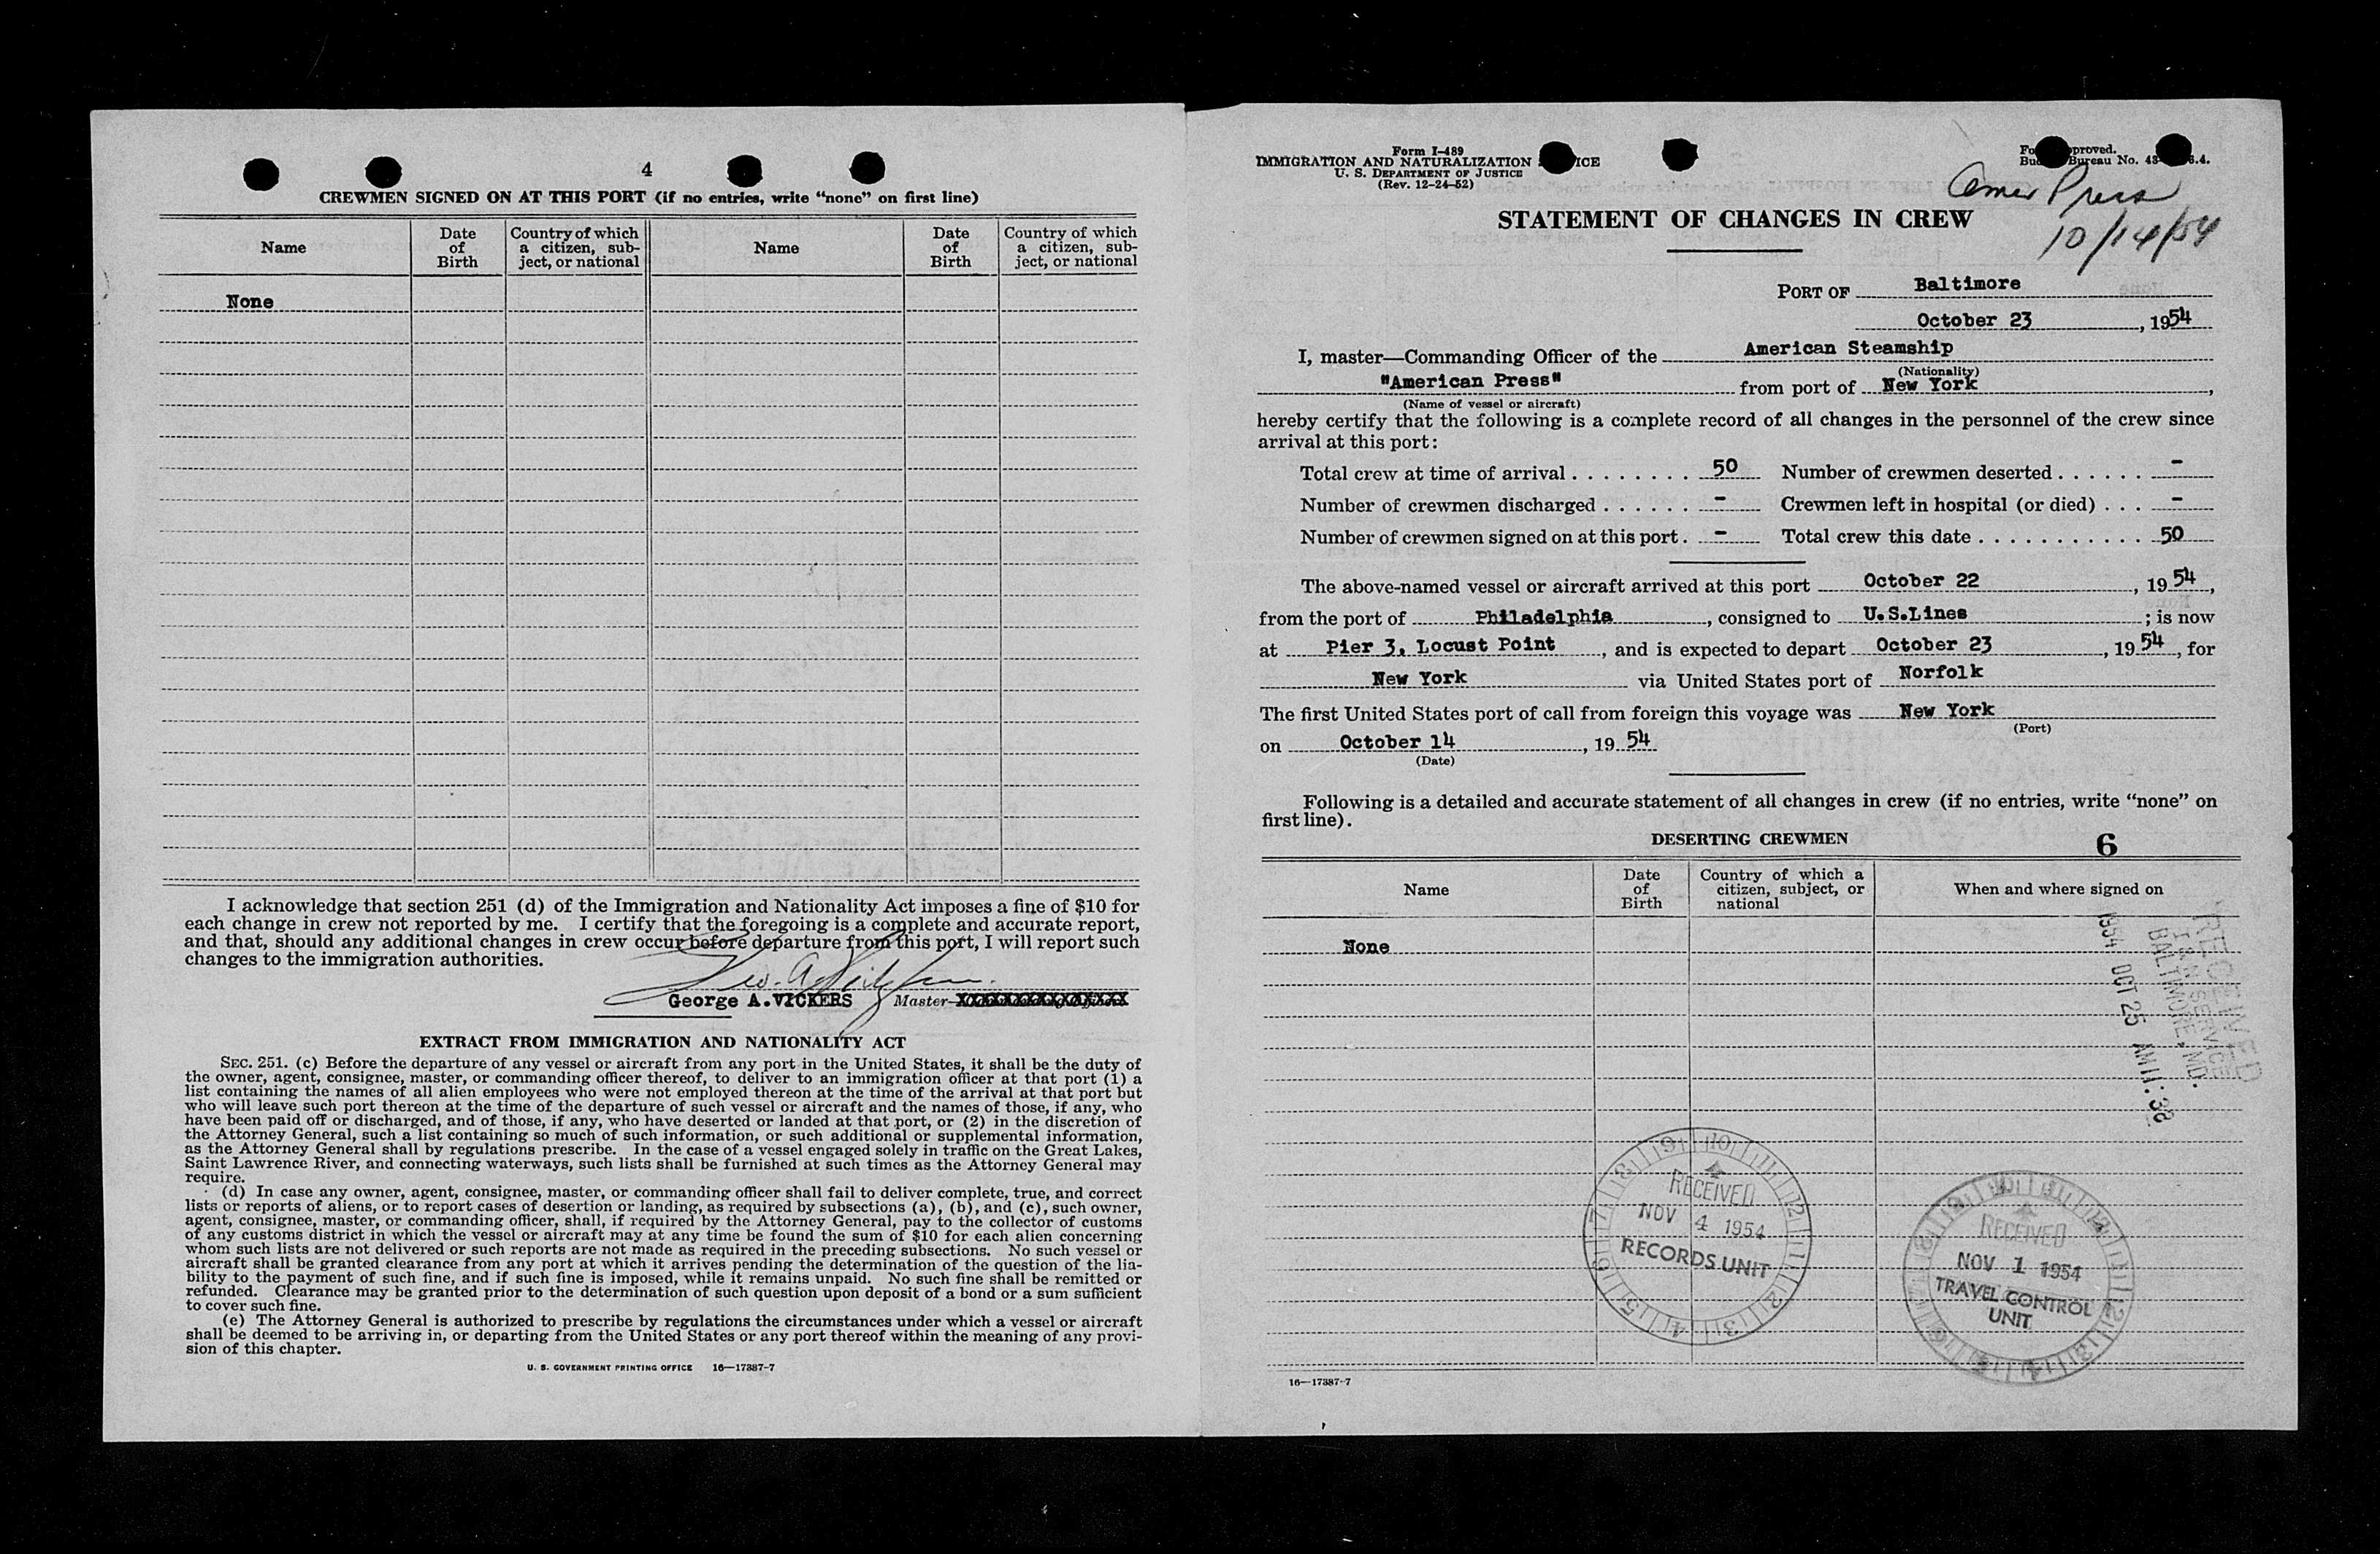 4
CREWMEN SIGNED ON AT THIS PORT (if no entries, write “none” on first line)
Name
Date of Birth
Country of which a citizen, sub-ject, or national
Name
Date of Birth
Country of which a citizen, sub-ject, or national
None
I acknowledge that section 251 (d) of the Immigration and Nationality Act imposes a fine of $10 for
each change in crew not reported by me. I certify that the foregoing is a complete and accurate report,
and that, should any additional changes in crew occur before departure from this port, I will report such
changes to the immigration authorities.
George A.VICKERS Master—
EXTRACT FROM IMMIGRATION AND NATIONALITY ACT
SEC. 251. (c) Before the departure of any vessel or aircraft from any port in the United States, it shall be the duty of
the owner, agent, consignee, master, or commanding officer thereof, to deliver to an immigration officer at that port (1) a
list containing the names of all alien employees who were not employed thereon at the time of the arrival at that port but
who will leave such port thereon at the time of the departure of such vessel or aircraft and the names of those, if any, who
have been paid off or discharged, and of those, if any, who have deserted or landed at that port, or (2) in the discretion of
the Attorney General, such a list containing so much of such information, or such additional or supplemental information,
as the Attorney General shall by regulations prescribe. In the case of a vessel engaged solely in traffic on the Great Lakes,
Saint Lawrence River, and connecting waterways, such lists shall be furnished at such times as the Attorney General may
require.
(d) In case any owner, agent, consignee, master, or commanding officer shall fail to deliver complete, true, and correct
lists or reports of aliens, or to report cases of desertion or landing, as required by subsections (a), (b), and (c), such owner,
agent, consignee, master, or commanding officer, shall, if required by the Attorney General, pay to the collector of customs
of any customs district in which the vessel or aircraft may at any time be found the sum of $10 for each alien concerning
whom such lists are not delivered or such reports are not made as required in the preceding subsections. No such vessel or
aircraft shall be granted clearance from any port at which it arrives pending the determination of the question of the lia-
bility to the payment of such fine, and if such fine is imposed, while it remains unpaid. No such fine shall be remitted or
refunded. Clearance may be granted prior to the determination of such question upon deposit of a bond or a sum sufficient
to cover such fine.
(e) The Attorney General is authorized to prescribe by regulations the circumstances under which a vessel or aircraft
shall be deemed to be arriving in, or departing from the United States or any port thereof within the meaning of any provi-
sion of this chapter.
U. S. GOVERNMENT PRINTING OFFICE 16—17387-7
Form I-489
IMMIGRATION AND NATURALIZATION
U. S. DEPARTMENT OF JUSTICE
(Rev. 12-24-52)
Bureau No.
Amer Press
10/14/54
STATEMENT OF CHANGES IN CREW
PORT OF Baltimore
October 23, 1954
I, master—Commanding Officer of the American Steamship
(Nationality)
"American Press" from port of New York,
(Name of vessel or aircraft)
hereby certify that the following is a complete record of all changes in the personnel of the crew since
arrival at this port:
Total crew at time of arrival 50 Number of crewmen deserted -
Number of crewmen discharged - Crewmen left in hospital (or died) -
Number of crewmen signed on at this port - Total crew this date 50
The above-named vessel or aircraft arrived at this port October 22, 1954,
from the port of Philadelphia, consigned to U.S.Lines; is now
at Pier 3, Locust Point, and is expected to depart October 23, 1954, for
New York via United States port of Norfolk
The first United States port of call from foreign this voyage was New York
(Port)
on October 14, 1954
(Date)
Following is a detailed and accurate statement of all changes in crew (if no entries, write “none” on
first line).
DESERTING CREWMEN
6
Name
Date of Birth
Country of which a citizen, subject, or national
When and where signed on
None
RECEIVED
I & N SERVICE
BALTIMORE, MD.
1954 OCT 25 AM 11:
RECEIVED
NOV 4 1954
RECORDS UNIT
RECEIVED
NOV 1 1954
TRAVEL CONTROL
UNIT
16—17387-7